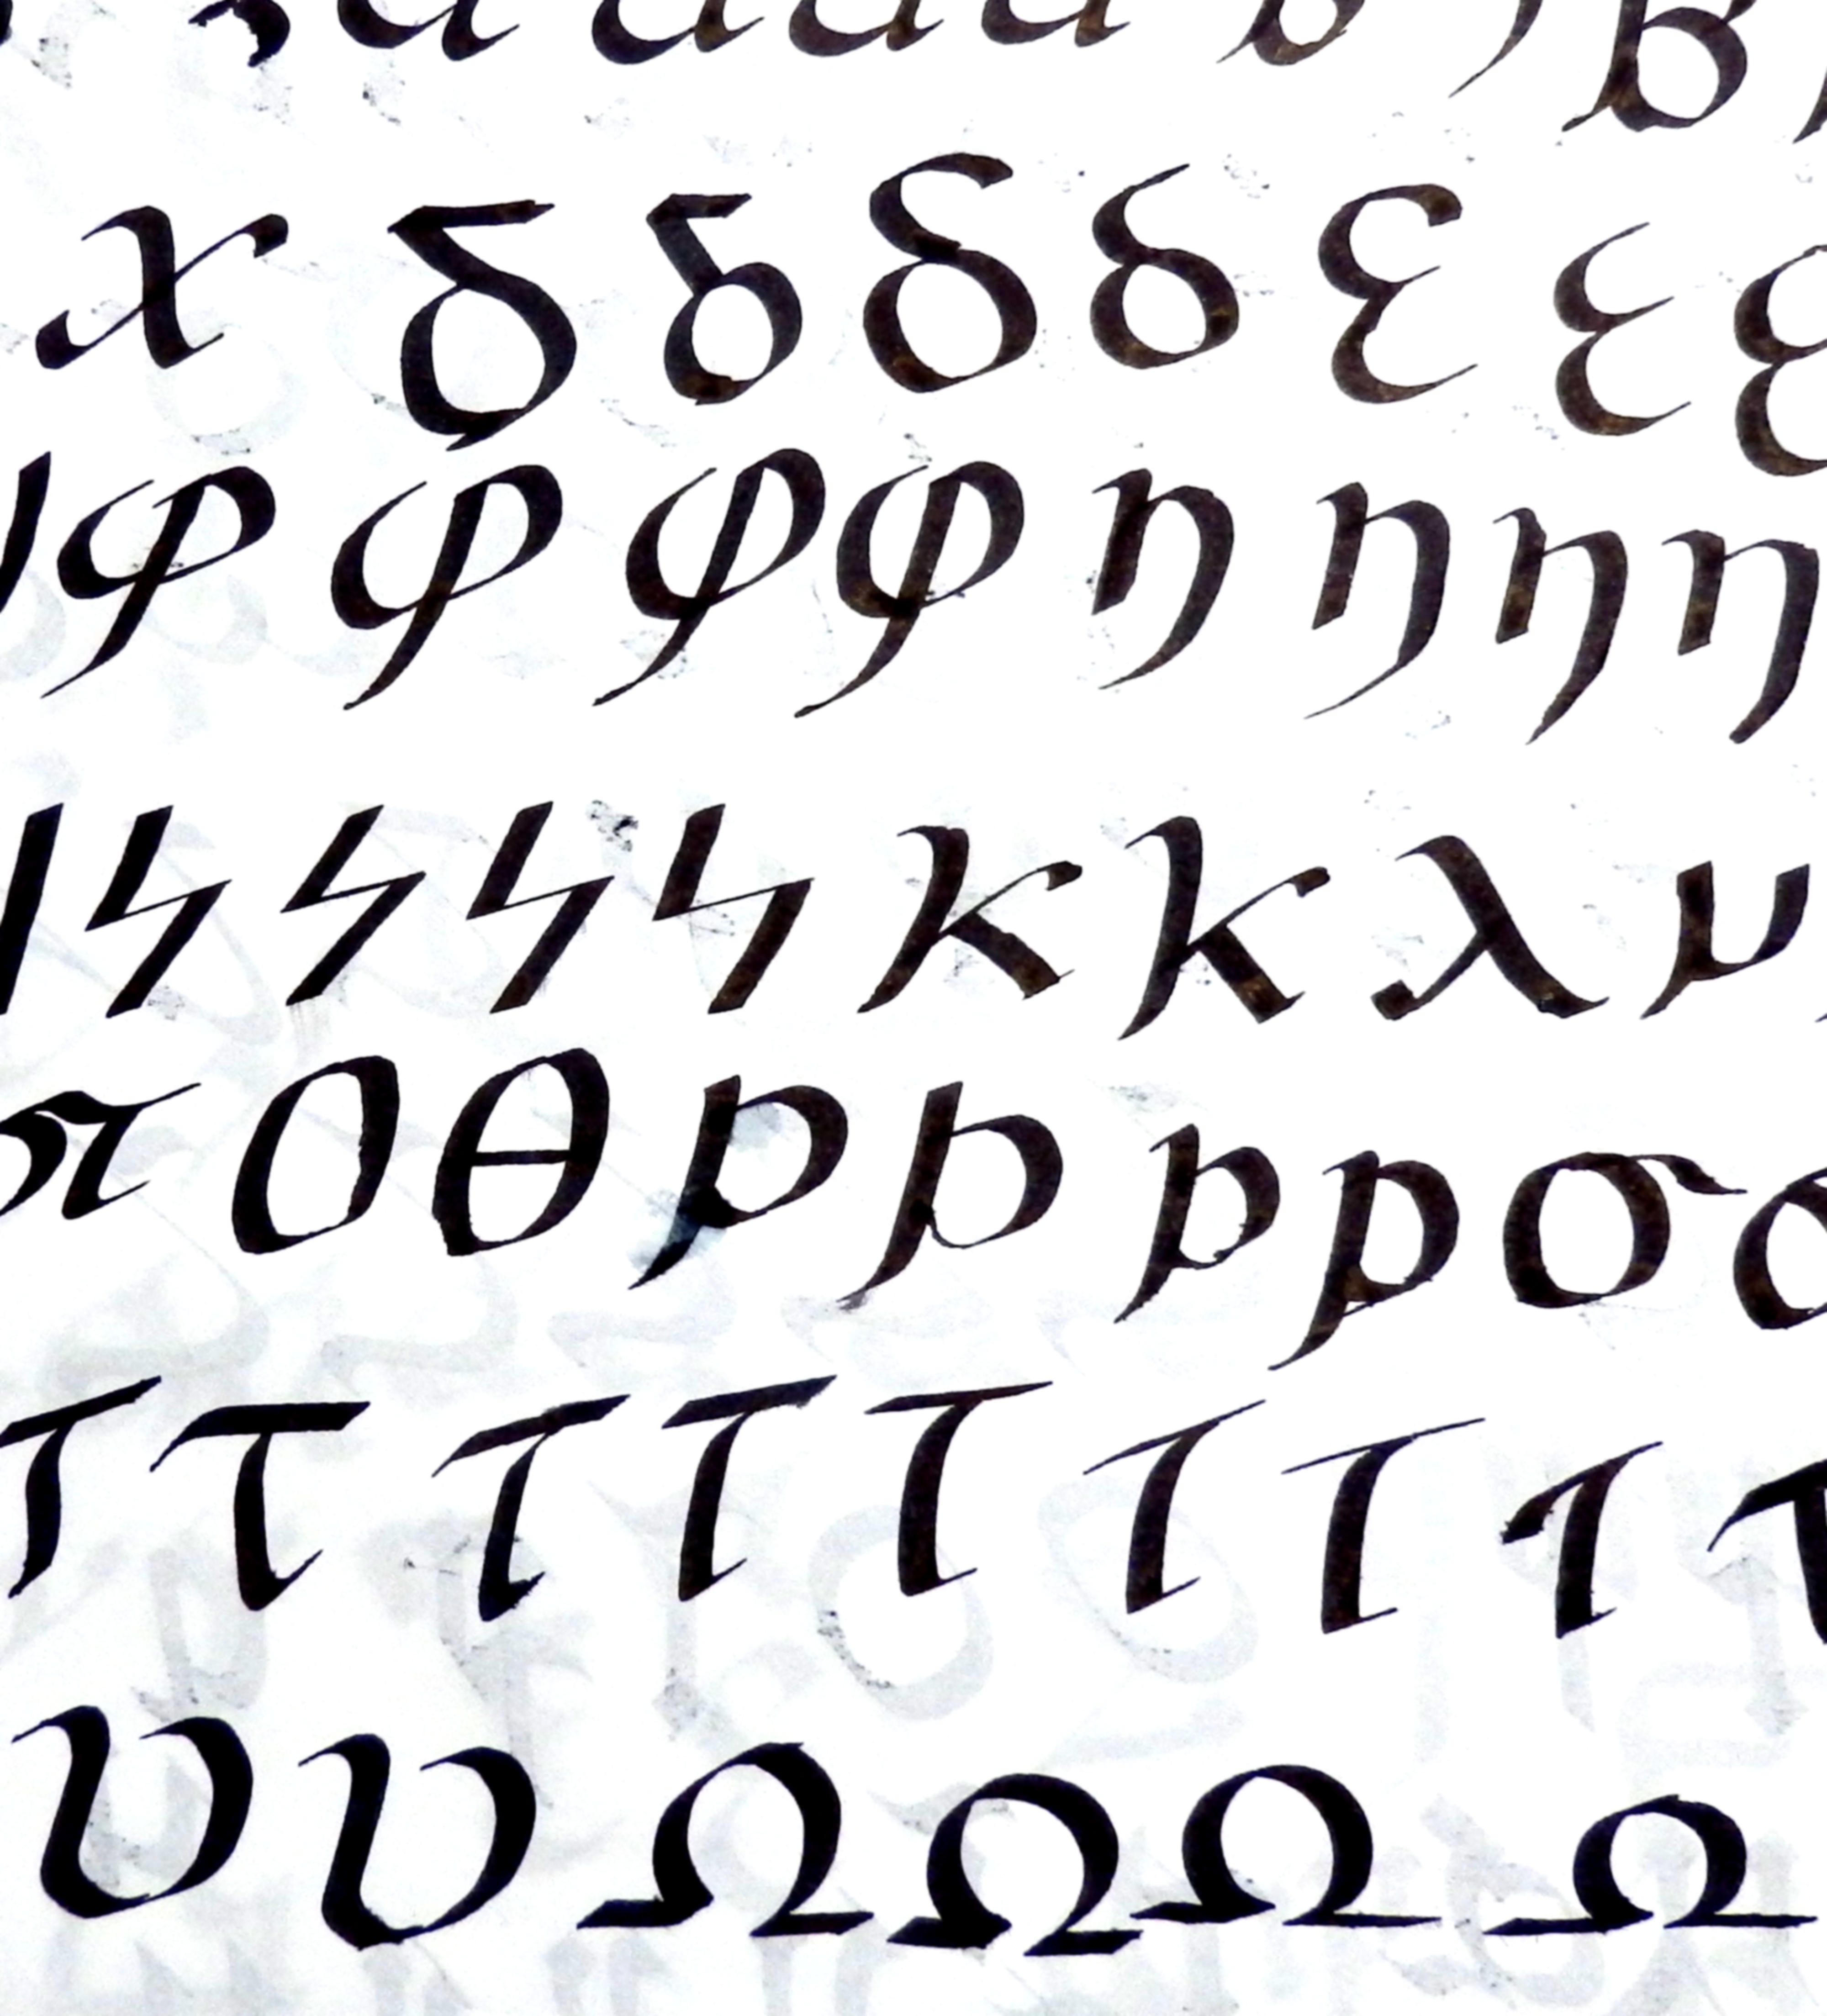 α α α α β β
χ δ δ δ δ ε ε ε
φ φ φ φ η η η η
ϟ ϟ ϟ ϟ κ κ λ μ
π θ ρ ρ ρ ρ σ σ
τ τ τ τ τ τ τ τ τ
υ υ Ω Ω Ω Ω